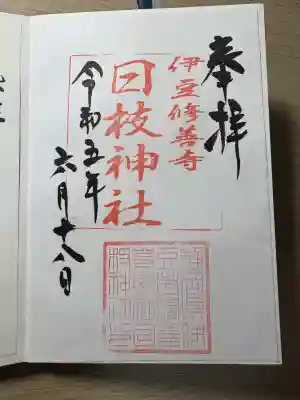 奉拝
伊豆修善寺
日枝神社
令和五年
六月十八日